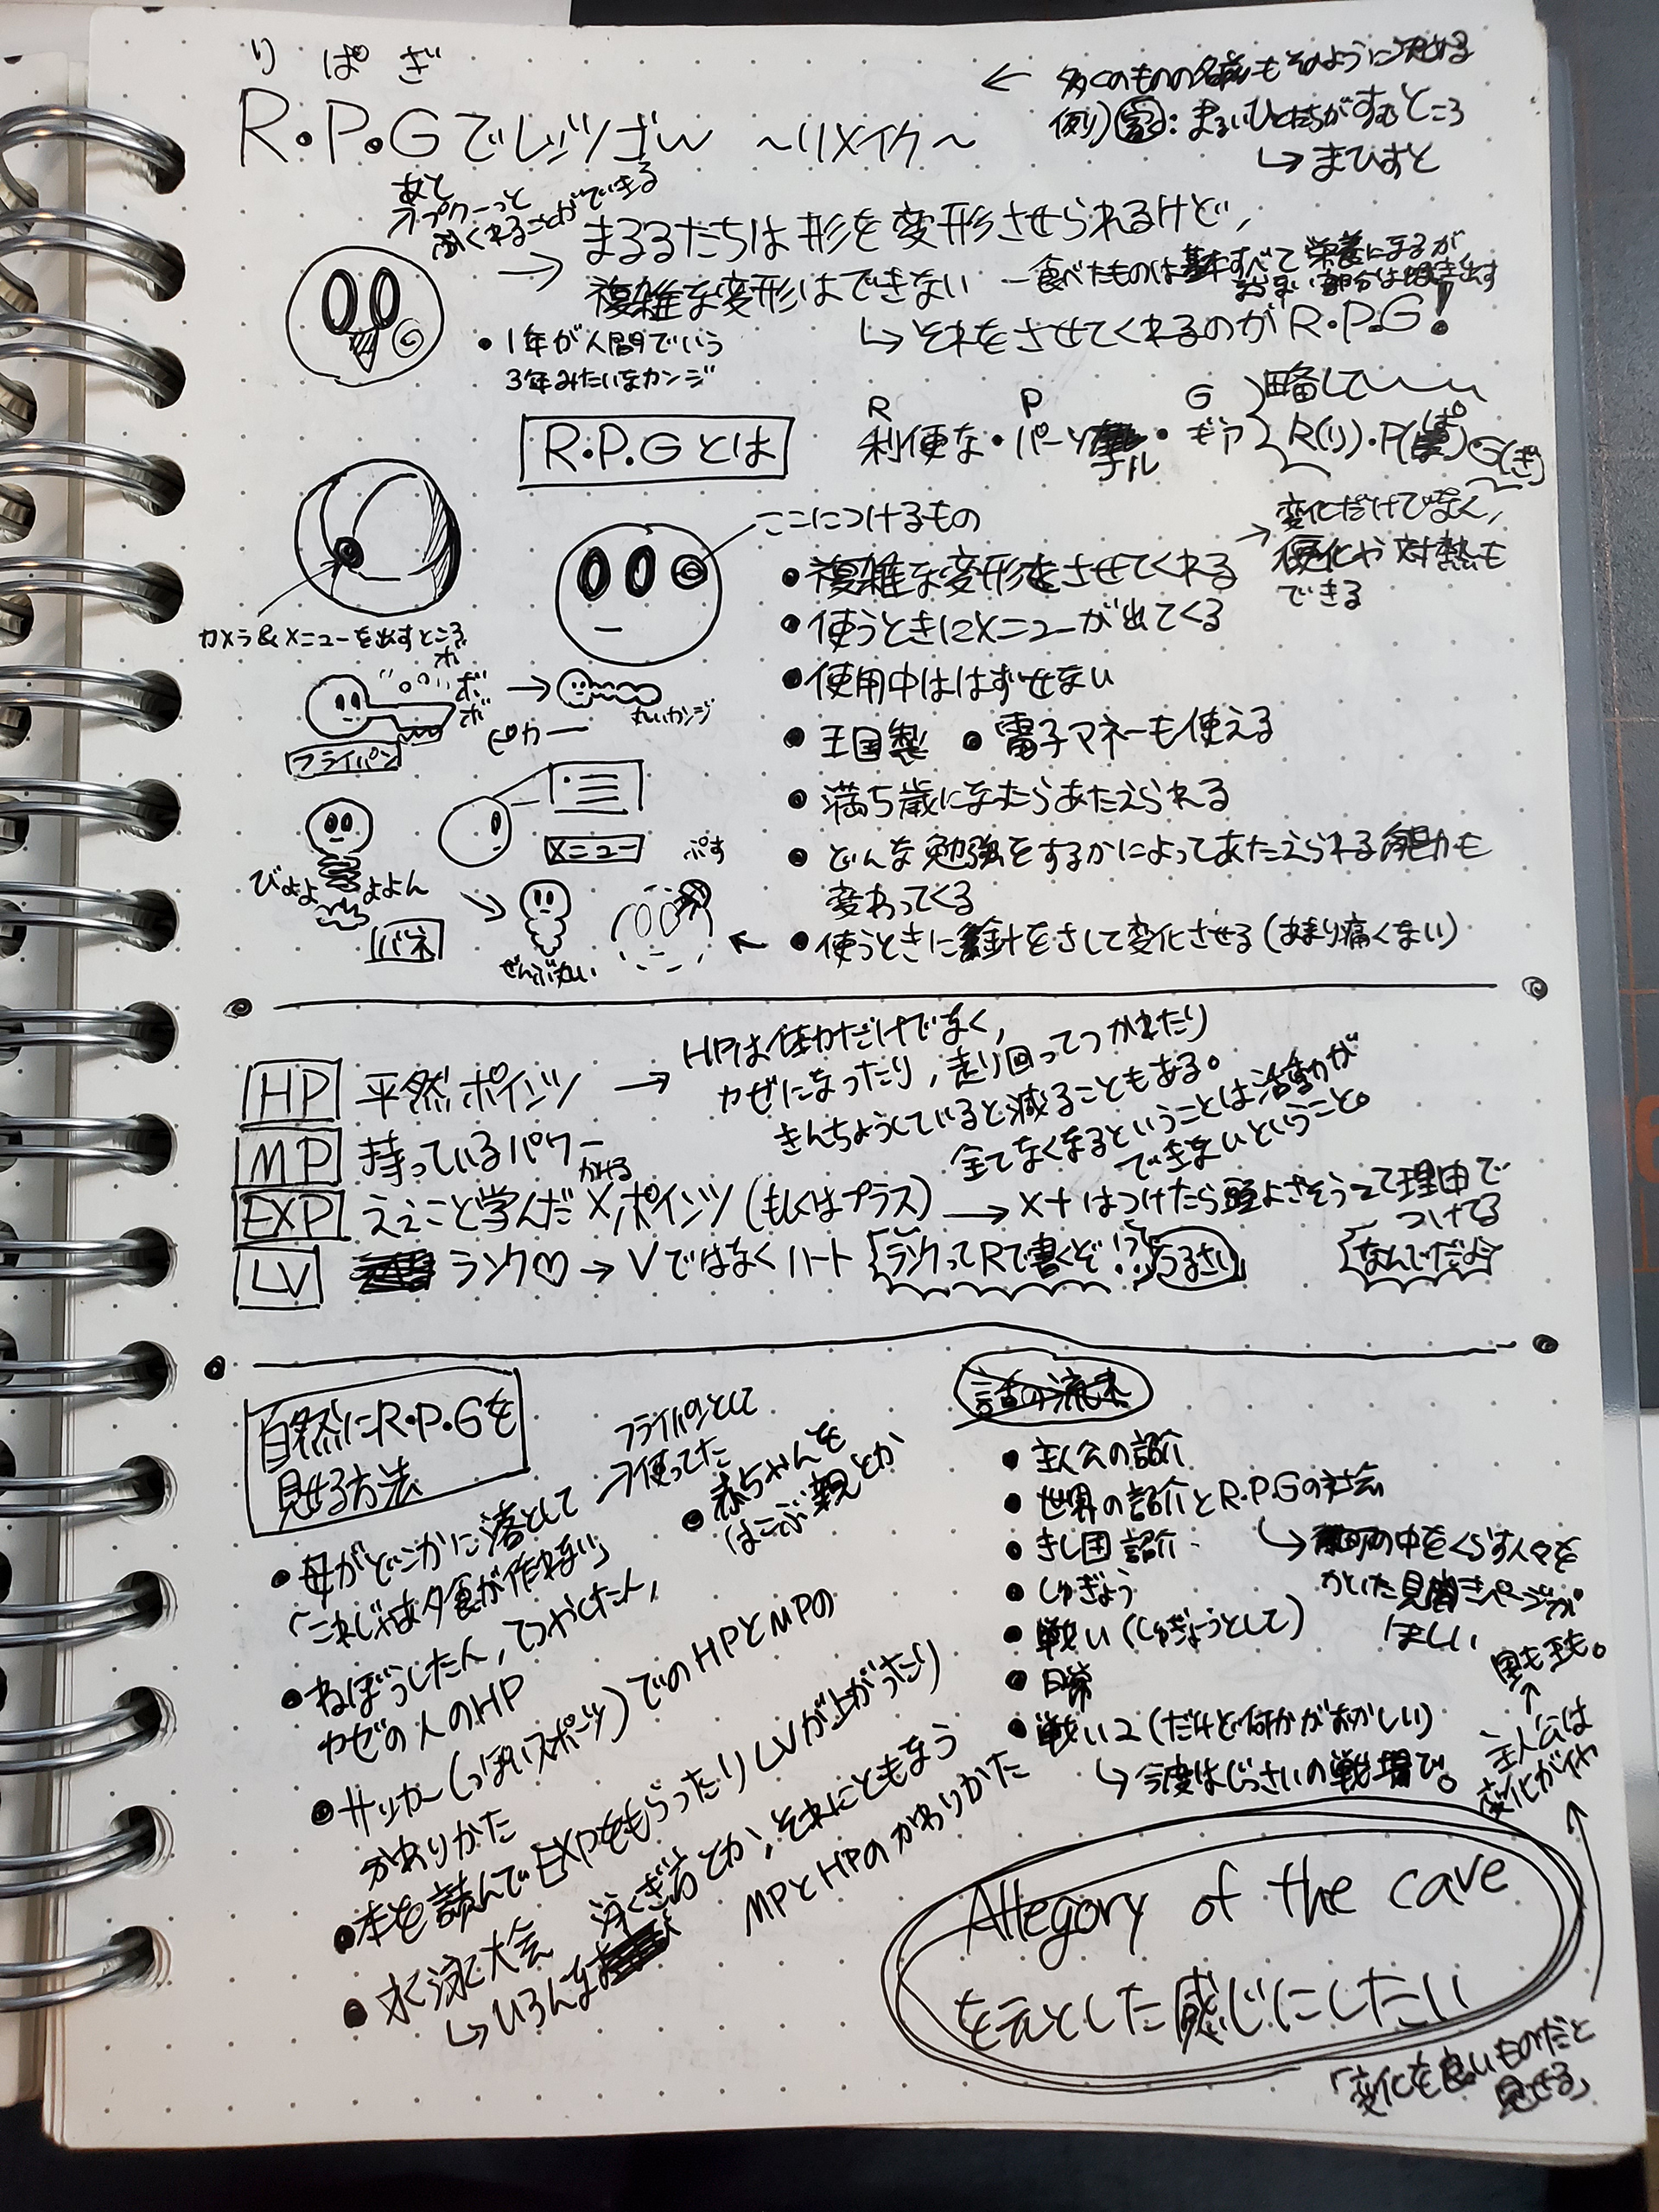 り ぱ ぎ
R・P・Gでレッツゴw ~リメイク~
← 多くのものの名前もそのように決める
例)家:まるいひとたちがすむところ
↳ まひすと
あと
プクーっと
ふくれることができる
→ まるるたちは形を変形させられるけど、
複雑な変形はできない
食べたものは基本すべて栄養になるが
部分は吐き出す
↳ それをさせてくれるのがR・P・G!
・1年が人間でいう
3年みたいなカンジ
R P G
R・P・Gとは
利便な・パーソナル・ギア
略して
R(り)・P(ぱ)・G(ぎ)
ここにつけるもの
・複雑な変形をさせてくれる
→ 変化だけでなく、
硬化や対熱も
できる
・使うときにメニューが出てくる
・使用中ははずせない
・王国製 ・電子マネーも使える
・満ち歳になったらあたえられる
・どんな勉強をするかによってあたえられる能力も
変わってくる
・使うときに針をさして変化させる(あまり痛くない)
カメラ&メニューを出すところ
ボ
ボ
ボ
丸いカンジ
フライパン
ピカー
メニュー
ぷす
びよよ よよん
バネ
ぜんぶ丸い
HP 平然ポインツ → HPは体力だけでなく、
カゼになったり、走り回ってつかれたり
きんちょうしていると減ることもある。
全てなくなるということは活動が
できないということ。
MP 持っているパワー
かける
EXP ええこと学んだ×ポインツ(もしくはプラス) → ×+はつけたら頭よさそうって理由で
つけてる
なんでだよ
LV ランク♡ → Vではなくハート ランクってRで書くぞ!? うるさい
自然にR・P・Gを
見せる方法
・母がどこかに落として
→ フライパンとして
使ってた
「これじゃぁ夕食が作れない」
・赤ちゃんを
はこぶ親とか
・ねぼうしたん、てつやしたん、
カゼの人のHP
・サッカー(っぽいスポーツ)でのHPとMPの
かわりかた
・本を読んでEXPをもらったりLVが上がったり
・水泳大会
泳ぎ方とか、それにともなう
MPとHPのかわりかた
↳ いろんな
話の流れ
・主人公の紹介
・世界の紹介とR・P・Gの社会
↳ 町の中をくらす人々を
かいた見開きページが
ほしい
・きし団紹介
・しゅぎょう
・戦い(しゅぎょうとして)
・日常
・戦い2(だけど何かがおかしい)
↳ 今度はじっさいの戦場で。
主人公は
変化がイヤ
Allegory of the cave
を元とした感じにしたい
「変化を良いものだと
見せる」